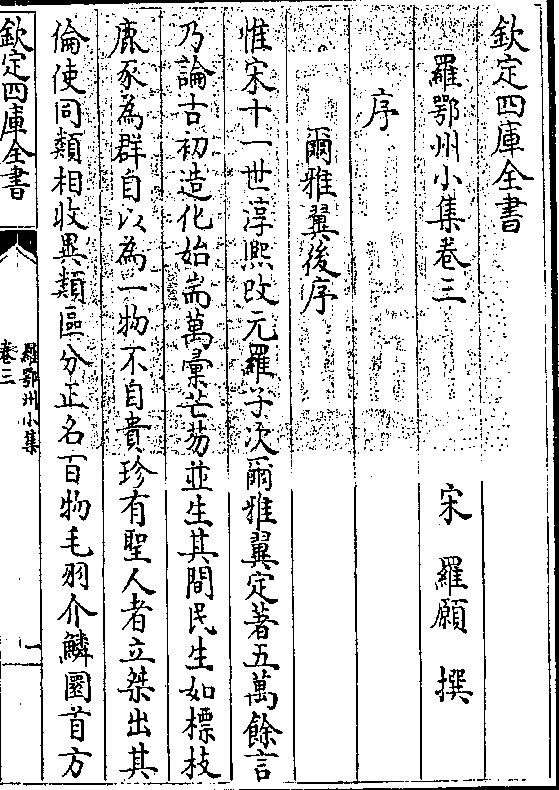 欽定四庫全書
羅鄂州小集卷三
宋 羅願 撰
序
爾雅翼後序
惟宋十一世淳熙改元羅子次爾雅翼定著五萬餘言
乃論古初造化始耑萬彙芒芴並生其間民生如標枝
鹿豕為群自以為一物不自貴珍有聖人者立桀出其
倫使同類相收異類區分正名百物毛羽介鱗圜首方
欽定四庫全書
羅鄂州小集
卷三
一